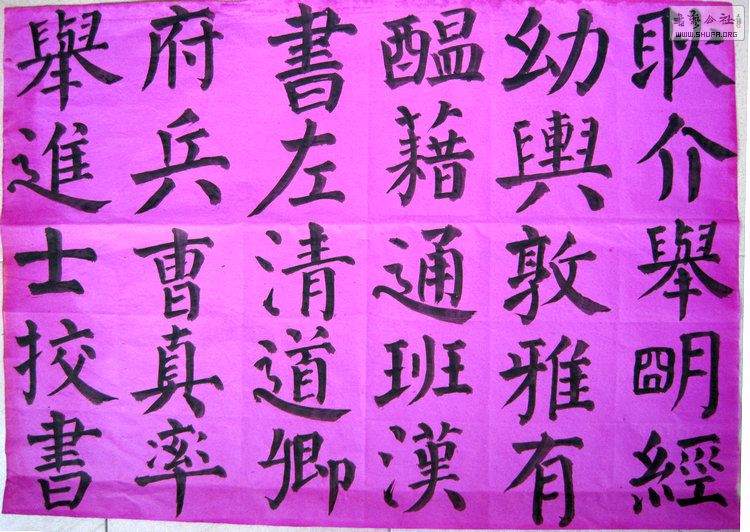 耿介舉朙經
幼輿敦雅有
醖藉通班漢
書左清道卿
府兵曹真率
舉進士挍書
WWW.SHUFA.ORG